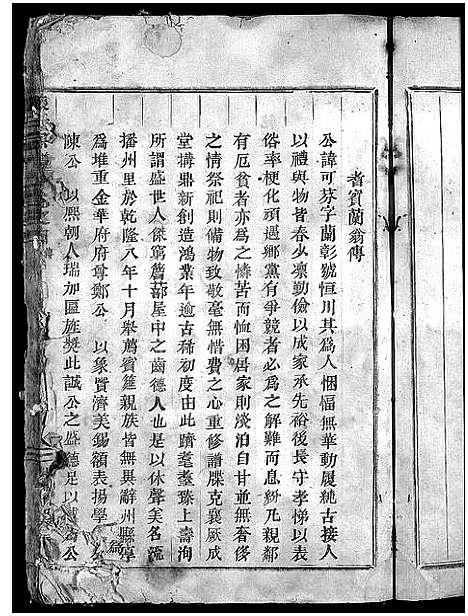 耆賓蘭翁傳
公諱可芬字蘭彰號恒川其為人悃愊無華動履純古接人
以禮與物皆春少稟勤儉以成家承先裕後長守孝悌以表
俗率梗化頑遇鄉黨有爭競者必為之解難而息紛凡親鄰
有厄貧者亦為之憐苦而恤困居家則淡泊自甘並無奢侈
之情祭祀則備物致敬毫無惜費之心重修譜牒克襄厥成
堂搆鼎新創造鴻業年逾古稀初度由此躋耄耋臻上壽洵
所謂盛世人傑窮簷蔀屋中之齒德人也是以休聲美名流
播州里於乾隆八年十月舉薦賓筵親族皆無異辭州縣享
為堆重金華府府尊鄭公 以象賢濟美錫額表揚學
陳公 以熙朝人瑞加匾旌獎此誠公之盛德足以 公